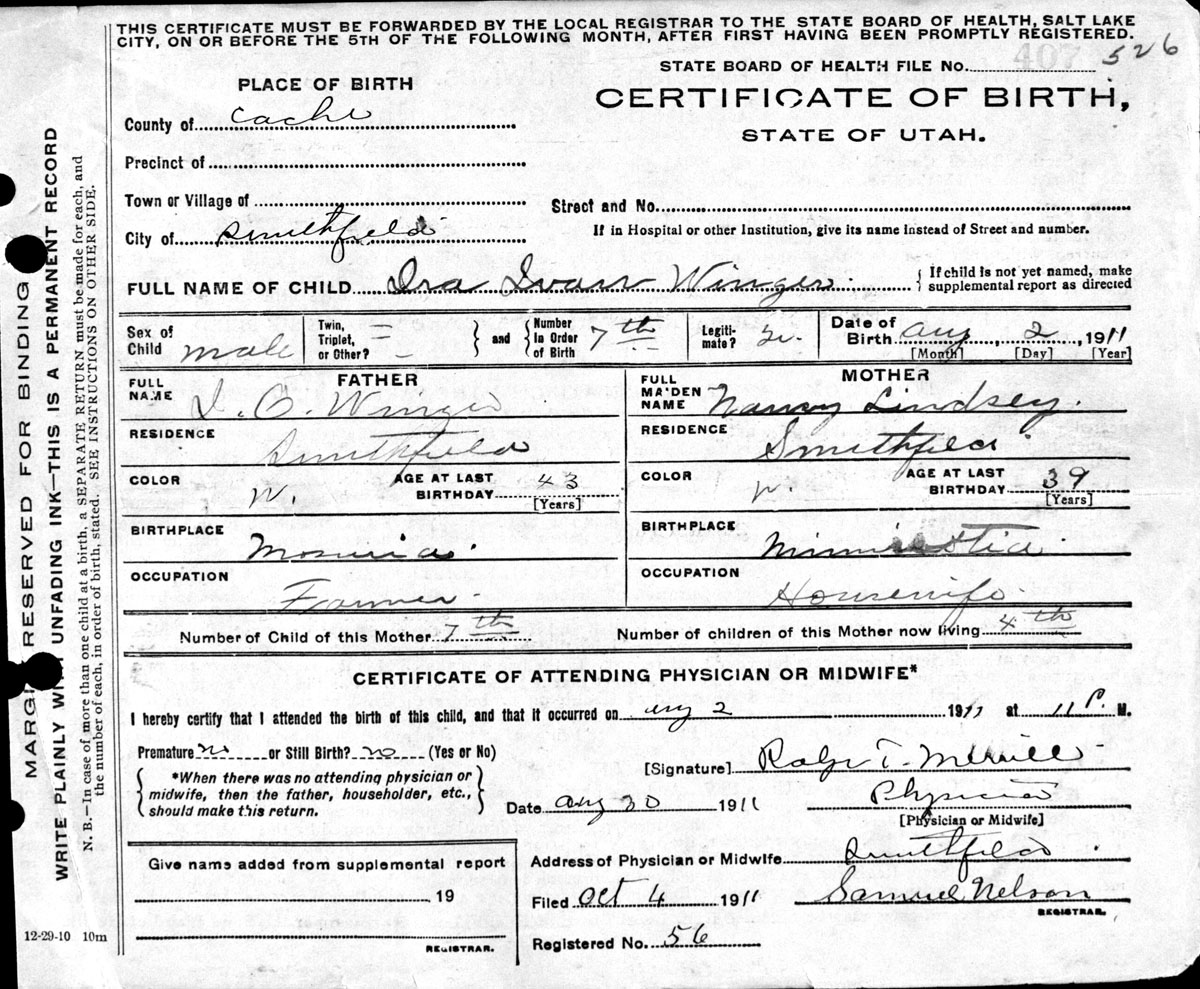 THIS CERTIFICATE MUST BE FORWARDED BY THE LOCAL REGISTRAR TO THE STATE BOARD OF HEALTH, SALT LAKE
CITY, ON OR BEFORE THE 5TH OF THE FOLLOWING MONTH, AFTER FIRST HAVING BEEN PROMPTLY REGISTERED.
407 526
STATE BOARD OF HEALTH FILE NO.
PLACE OF BIRTH
CERTIFICATE OF BIRTH,
STATE OF UTAH.
County of Cache
Precinct of
Town or Village of
Street and No.
City of Smithfield
If in Hospital or other Institution, give its name instead of Street and number.
FULL NAME OF CHILD Ira Ivan Winger
{ If child is not yet named, make
supplemental report as directed
Sex of Child male
Twin, Triplet, or Other? –
and
Number in Order of Birth 7th
Legiti-mate?
Date of Birth Aug 2 1911
[Month] [Day] [Year]
FATHER
FULL NAME Winger
RESIDENCE Smithfield
COLOR W. AGE AT LAST BIRTHDAY 43
[Years]
BIRTHPLACE
OCCUPATION Farmer
MOTHER
FULL MAIDEN NAME Nancy Lindsey.
RESIDENCE Smithfield
COLOR W. AGE AT LAST BIRTHDAY 39
[Years]
BIRTHPLACE
OCCUPATION Housewife
Number of Child of this Mother 7th Number of children of this Mother now living 4th
CERTIFICATE OF ATTENDING PHYSICIAN OR MIDWIFE*
I hereby certify that I attended the birth of this child, and that it occurred on Aug 2 1911 at 11 P. M.
Premature no or Still Birth? no (Yes or No)
{ *When there was no attending physician or
midwife, then the father, householder, etc.,
should make this return. }
[Signature] T. Merrill
Date Aug 30 1911 Physician
[Physician or Midwife]
Give name added from supplemental report
19
REGISTRAR.
Address of Physician or Midwife Smithfield
Filed Oct 4 1911 Samuel Nelson
REGISTRAR.
Registered No. 56
12-29-10 10m
MARGIN RESERVED FOR BINDING
WRITE PLAINLY WITH UNFADING INK—THIS IS A PERMANENT RECORD
N. B.—In case of more than one child at a birth, a SEPARATE RETURN must be made for each, and
the number of each, in order of birth, stated. SEE INSTRUCTIONS ON OTHER SIDE.